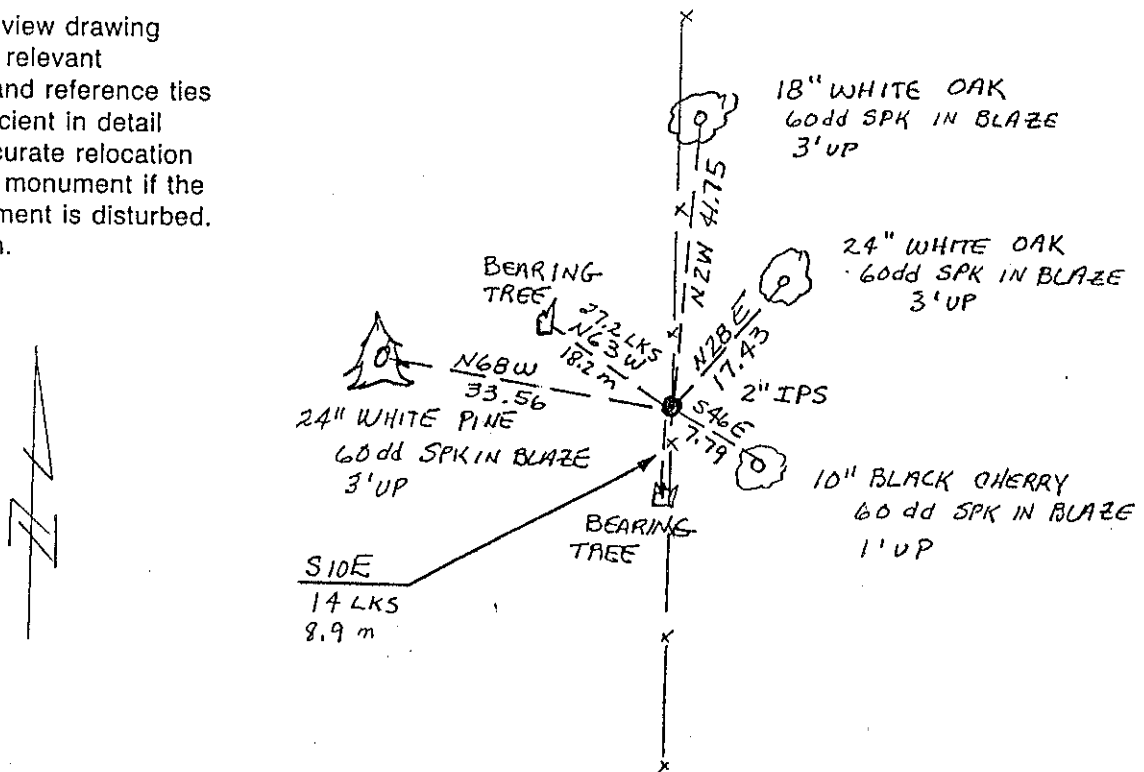 view drawing
relevant
and reference ties
cient in detail
curate relocation
monument if the
ment is disturbed.
18" WHITE OAK
60dd SPK IN BLAZE
3' UP
N2W 41.75
24" WHITE OAK
60dd SPK IN BLAZE
3' UP
N28E
17.43
BEARING
TREE
27.2 LKS
N63W
18.2 m
N68W
33.56
24" WHITE PINE
60dd SPK IN BLAZE
3' UP
2" IPS
S46E
7.79
10" BLACK CHERRY
60dd SPK IN BLAZE
1' UP
BEARING
TREE
S10E
14 LKS
8.9 m
N